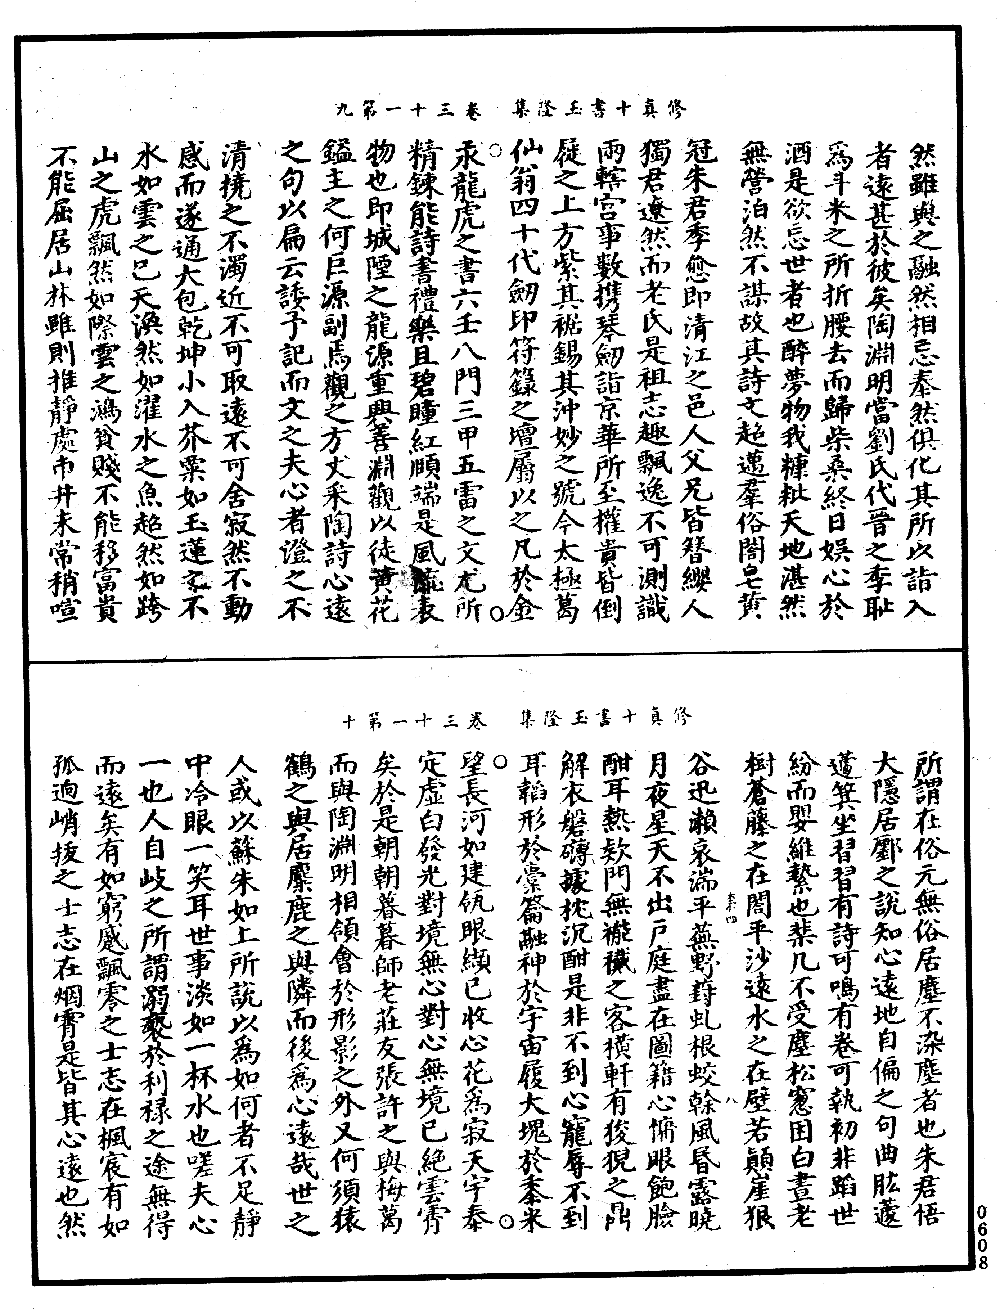 修真十書玉隆集　卷三十一第九
然雖與之融然相忘泰然俱化其所以詣入
者遠甚於彼矣陶淵明當劉氏代晉之季恥
為斗米之所折腰去而歸柴桑終日娛心於
酒是欲忘世者也醉夢物我糠粃天地湛然
無營泊然不謀故其詩文超邁羣俗閤皂黄
冠朱君季愈即清江之邑人父兄皆簪纓人
獨君遼然而老氏是祖志趣飄逸不可測識
兩轄宫事數携琴劒詣京華所至權貴皆倒
屣之上方紫其裾錫其沖妙之號今太極葛
仙翁四十代劒印符籙之壇屬以之凡於金
汞龍虎之書六壬八門三甲五雷之文尤所
精鍊能詩書禮樂且碧瞳紅頰端是風流表
物也即城陻之龍源重興善淵觀以徒黄花
鎰主之何巨源副焉觀之方丈采陶詩心遠
之句以扁云諉予記而文之夫心者澄之不
清撓之不濁近不可取遠不可舍寂然不動
感而遂通大包乾坤小入芥粟如玉蓮之不
水如雲之已天渙然如濯水之魚超然如跨
山之虎飄然如際雲之鴻貧賤不能移富貴
不能屈居山林雖則推靜處市井未常稍喧
修真十書玉隆集　卷三十一第十
所謂在俗元無俗居塵不染塵者也朱君悟
大隱居鄽之說知心遠地自偏之句曲肱蘧
蘧箕坐習習有詩可鳴有卷可執初非蹈世
紛而嬰維縶也棐几不受塵松窻困白晝老
樹蒼藤之在閤平沙遠水之在壁若顛崖狠
谷迅瀨哀湍平蕪野莽虬根蛟榦風昏露曉
月夜星天不出戶庭盡在圖籍心慵眼飽臉
酣耳熱欵門無襤襶之客横軒有狻猊之鼎
解衣磐礴據枕沉酣是非不到心寵辱不到
耳韜形於槖籥融神於宇宙履大塊於黍米
望長河如建瓴眼纈已收心花為寂天宇泰
定虚白發光對境無心對心無境已絕雲霄
矣於是朝朝暮暮師老莊友張許之與梅萬
而與陶淵明相領會於形影之外又何須猿
鶴之與居麋鹿之與隣而後為心遠哉世之
人或以蘇朱如上所說以為如何者不足靜
中冷眼一笑耳世事淡如一杯水也嗟夫心
一也人自歧之所謂溺藝於利祿之途無得
而遠矣有如窮慼飄零之士志在楓宸有如
孤迥峭拔之士志在烟霄是皆其心遠也然
0608